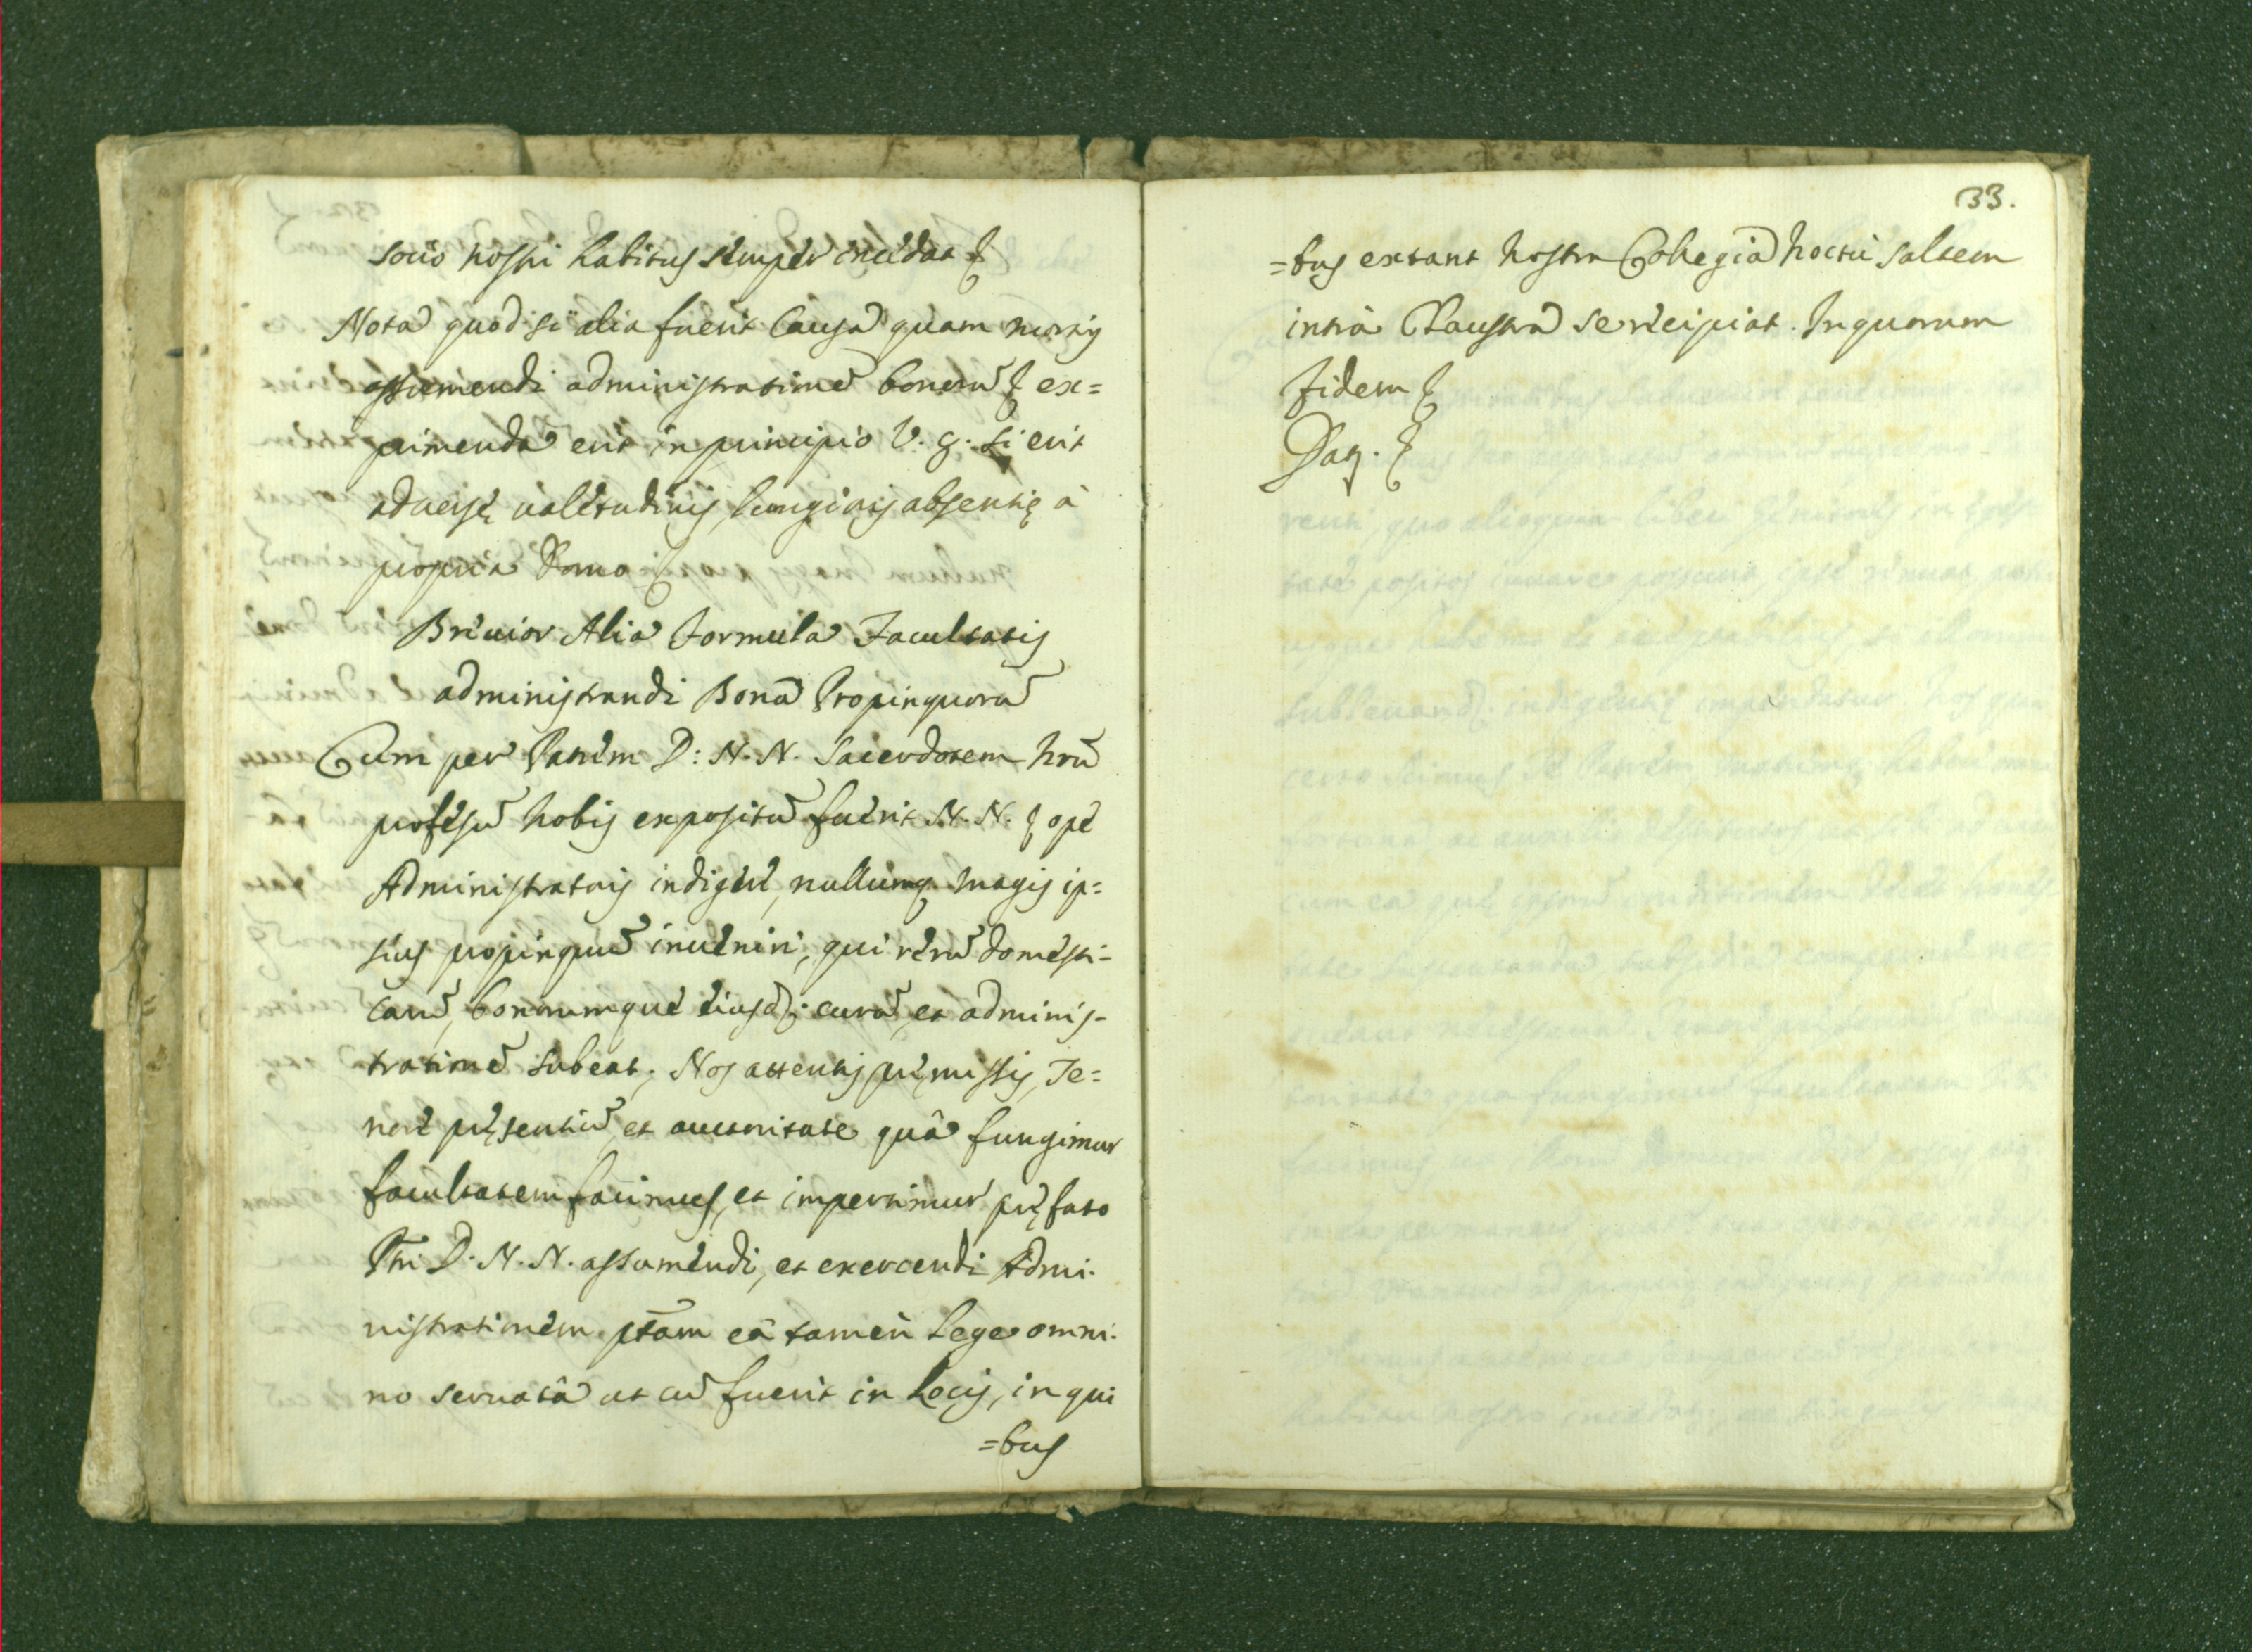 socio nostri habitus semper incedat &
Nota quod si alia fuerit Causa quam mortis
assumendi administrationē bonorū & ex=
primenda erit in principio V. g. si erit
aduersę ualetudinis, longioris absentię à
propria Domo &
Breuior Alia Formula Facultatis
administrandi Bona Propinquorū
Cum per Patrem D: N. N. Sacerdotem nrū
professū nobis expositū fuerit N. N. & ope
Administratoris indigere, nullumq. magis ip=
sius propinquū inueniri, qui rerū domesti-
carū, bonorumque eiusd. curā, et adminis-
trationē subeat; Nos attentis pręmissis, Te=
nore pręsentiū, et auctoritate quâ fungimur
facultatem facimus, et impertimur pręfato
Pri D. N. N. assumendi, et exercendi Admi-
nistrationem ptām eâ tamen Lege omni-
no seruatâ ut cū fuerit in Locis, in qui
=bus
33.
=bus extant nostra Collegia noctu saltem
intra Claustra se recipiat. In quorum
fidem &
Dat. &